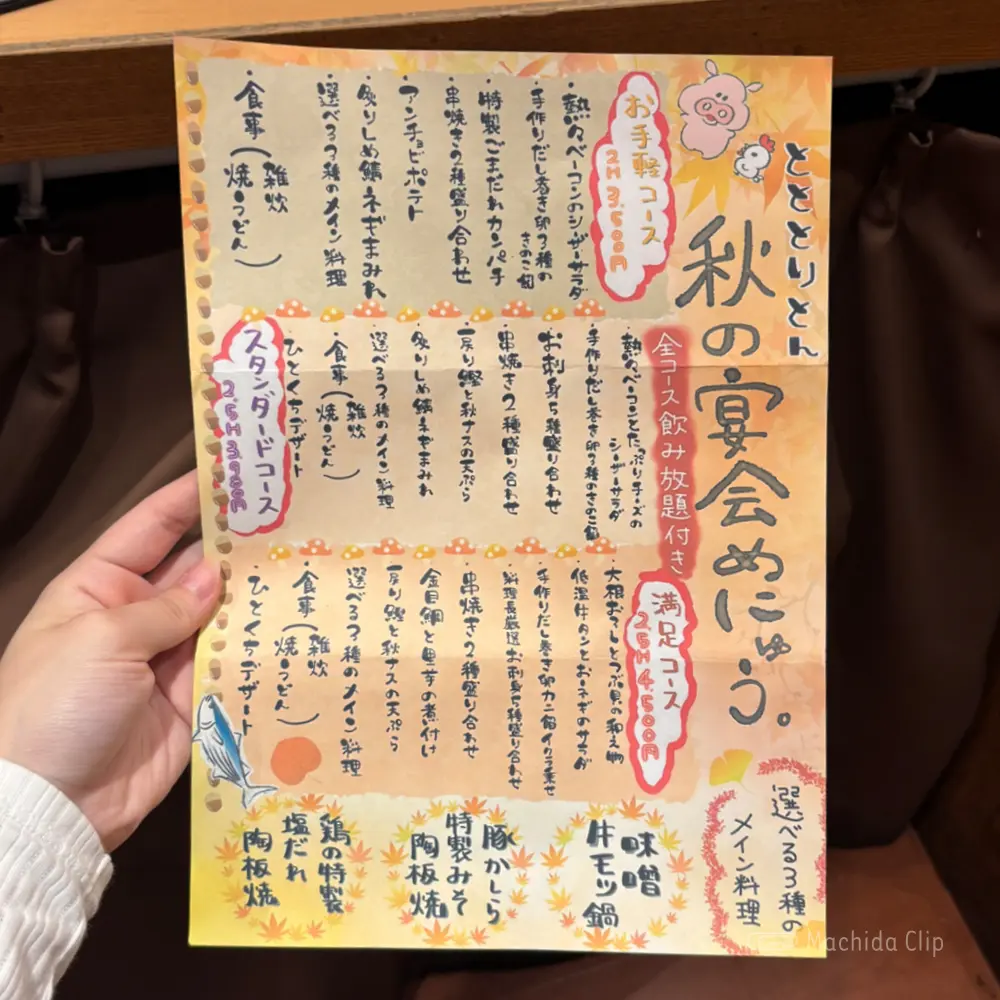 とととりとん
秋の宴会めにゅう。
全コース飲み放題付き
お手軽コース
2H 3.500円
・熱々ベーコンのシーザーサラダ
・手作りだし巻き卵3種の
きのこ餡
・特製ごまだれカンパチ
・串焼き2種盛り合わせ
・アンチョビポテト
・炙りしめ鯖ネギまみれ
・選べる3種のメイン料理
・食事(雑炊
焼うどん)
スタンダードコース
2.5H 3.900円
・熱々ベーコンとたっぷりチーズの
シーザーサラダ
・手作りだし巻き卵3種のきのこ餡
・お刺身5種盛り合わせ
・串焼き2種盛り合わせ
・戻り鰹と秋ナスの天ぷら
・炙りしめ鯖ネギまみれ
・選べる3種のメイン料理
・食事(雑炊
焼うどん)
・ひとくちデザート
満足コース
2.5H 4.500円
・大根おろしとつぶ貝の和え物
・低温牛タンとおネギのサラダ
・手作りだし巻き卵カニ餡イクラ乗せ
・料理長厳選お刺身5種盛り合わせ
・串焼き2種盛り合わせ
・金目鯛と里芋の煮付け
・戻り鰹と秋ナスの天ぷら
・選べる3種のメイン料理
・食事(雑炊
焼うどん)
・ひとくちデザート
選べる3種の
メイン料理
味噌
牛モツ鍋
豚かしら
特製みそ
陶板焼
鶏の特製
塩だれ
陶板焼
Machida Clip